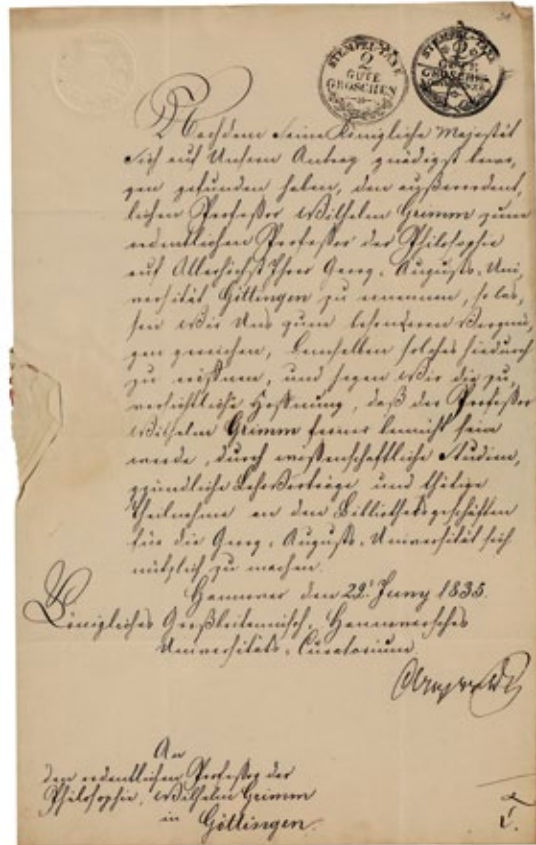 STEMPEL-TAXE
2
GUTE
GROSCHEN
STEMPEL-TAXE
GUTE
GROSCHEN
Nachdem Seine Königliche Majestät
Sich auf Unsern Antrag gnädigst bewo,
gen gefunden haben, den außerordent,
lichen Professor Wilhelm Grimm zum
ordentlichen Professor der Philosophie
auf Allerhöchst Ihrer Georg-Augusts-Uni,
versität Göttingen zu ernennen, so las,
sen Wir Uns zum besonderen Vergnü,
gen gereichen, demselben solches hiedurch
zu eröffnen, und hegen Wir die zu,
versichtliche Hoffnung, daß der Professor
Wilhelm Grimm ferner bemüht sein
werde, durch wissenschaftliche Studien,
gründliche Lehrvorträge und thätige
Theilnahme an den Bibliotheksgeschäften
für die Georg-Augusts-Universität sich
nützlich zu machen.
Hannover den 22. Juny 1835.
Königliches Großbritannisch-Hannoversches
Universitäts-Curatorium
An
den ordentlichen Professor der
Philosophie, Wilhelm Grimm
in
Göttingen.